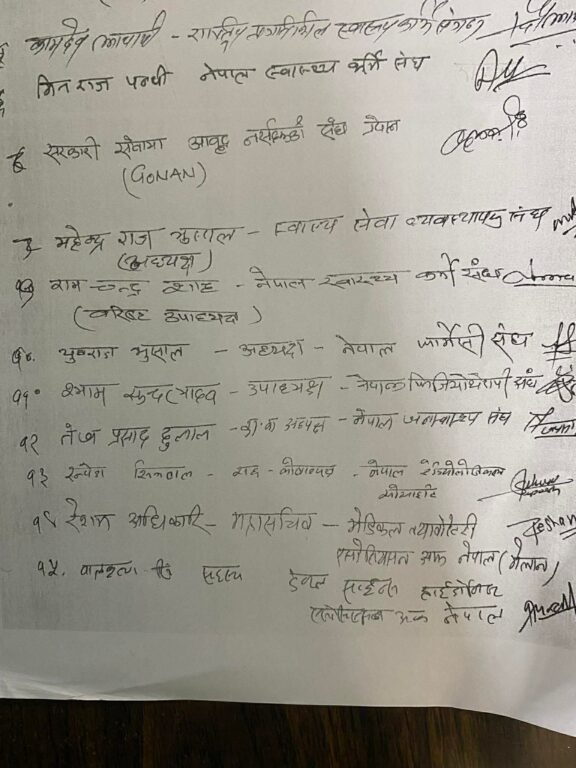 कामदेव - राष्ट्रिय प्रगतिशील स्वास्थ्यकर्मी संगठन
मित राज पन्थी नेपाल स्वास्थ्य कर्मी संघ
सरकारी सेवामा आवद्द नर्सहरुको संघ नेपाल
(GONAN)
महेन्द्र राज - स्वास्थ्य सेवा व्यवस्थापन संघ
(अध्यक्ष)
राम चन्द्र शाह - नेपाल स्वास्थ्य कर्मी संघ
(वरिष्ठ उपाध्यक्ष)
१०. युवराज भुसाल - अध्यक्ष - नेपाल फार्मेसी संघ
११. श्याम सुन्दर यादव - उपाध्यक्ष - नेपाल फिजियोथेरापी संघ
१२ तेज प्रसाद दुलाल - का.वा अध्यक्ष - नेपाल जनस्वास्थ्य संघ
१३ - सह-कोषाध्यक्ष - नेपाल रेडियोलोजिकल
सोसाइटि
१४ रोशन अधिकारी - महासचिव - मेडिकल ल्याबोरेटरी
एसोसियसन अफ नेपाल (मेलान)
१५. सदस्य डेन्टल हाईजेनिष्ट
एसोसियसन अफ नेपाल